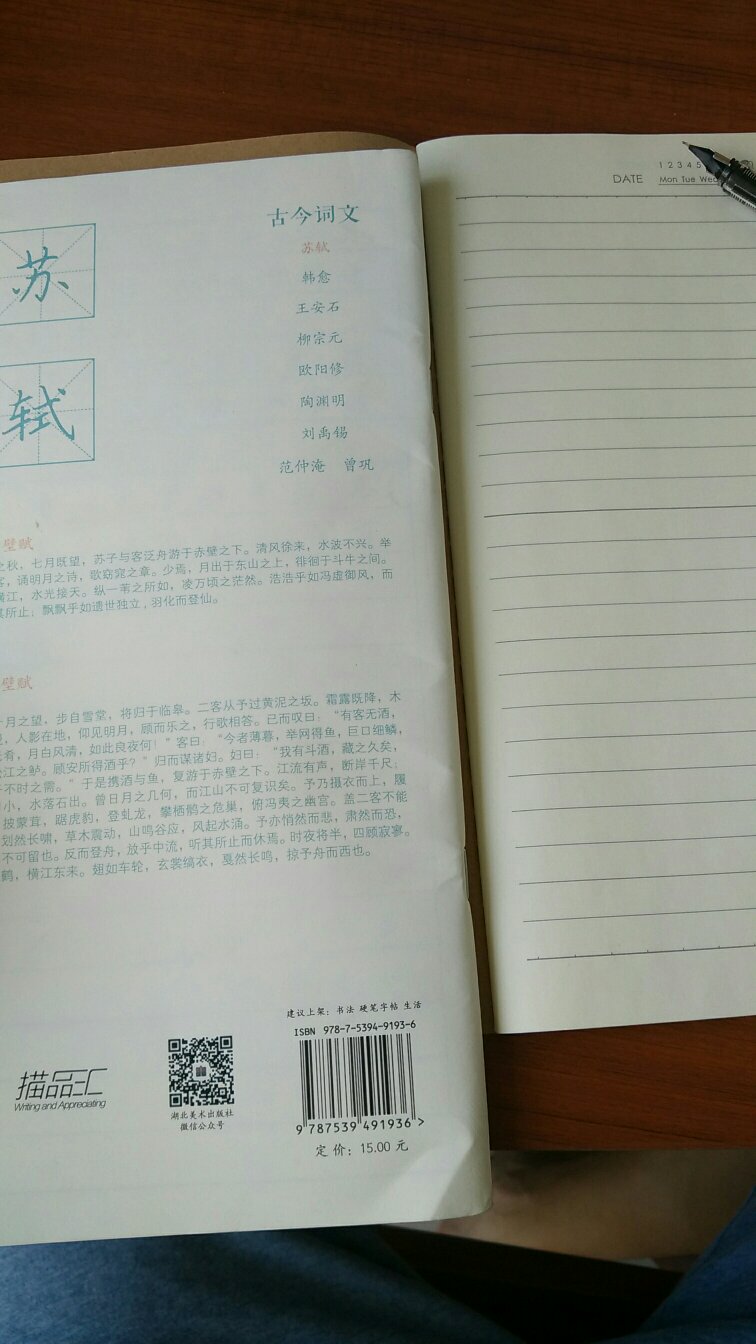 古今词文
苏轼
韩愈
王安石
柳宗元
欧阳修
陶渊明
刘禹锡
范仲淹 曾巩
苏
轼
壁赋
之秋，七月既望，苏子与客泛舟游于赤壁之下。清风徐来，水波不兴。举
客，诵明月之诗，歌窈窕之章。少焉，月出于东山之上，徘徊于斗牛之间。
横江，水光接天。纵一苇之所如，凌万顷之茫然。浩浩乎如冯虚御风，而
其所止；飘飘乎如遗世独立，羽化而登仙。
壁赋
十月之望，步自雪堂，将归于临皋。二客从予过黄泥之坂。霜露既降，木
，人影在地，仰见明月，顾而乐之，行歌相答。已而叹曰：“有客无酒，
无肴，月白风清，如此良夜何！”客曰：“今者薄暮，举网得鱼，巨口细鳞，
松江之鲈。顾安所得酒乎？”归而谋诸妇。妇曰：“我有斗酒，藏之久矣，
子不时之需。”于是携酒与鱼，复游于赤壁之下。江流有声，断岸千尺；
小，水落石出。曾日月之几何，而江山不可复识矣。予乃摄衣而上，履
披蒙茸，踞虎豹，登虬龙，攀栖鹘之危巢，俯冯夷之幽宫。盖二客不能
划然长啸，草木震动，山鸣谷应，风起水涌。予亦悄然而悲，肃然而恐，
不可留也。反而登舟，放乎中流，听其所止而休焉。时夜将半，四顾寂寥。
鹤，横江东来。翅如车轮，玄裳缟衣，戛然长鸣，掠予舟而西也。
建议上架：书法 硬笔字帖 生活
ISBN 978-7-5394-9193-6
9 787539 491936 >
定价：15.00 元
描品汇
Writing and Appreciating
湖北美术出版社
微信公众号
1 2 3 4 5
DATE Mon Tue Wed